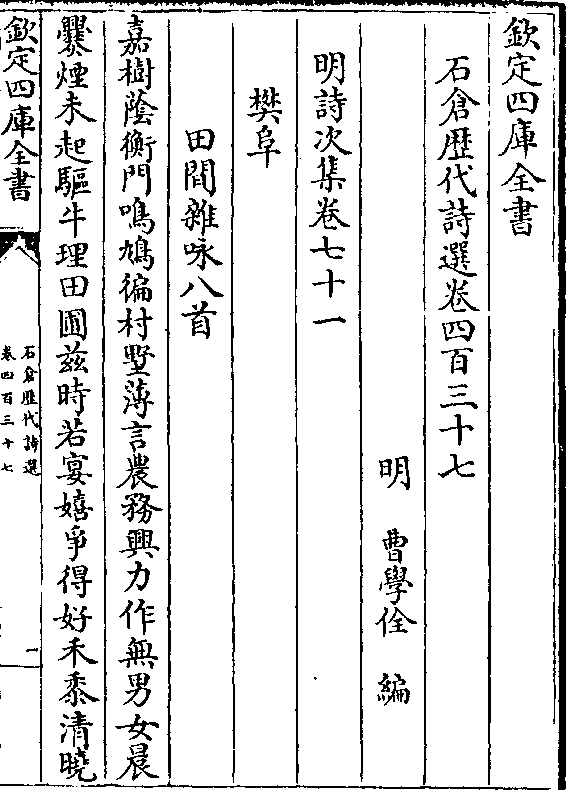 欽定四庫全書
石倉歴代詩選卷四百三十七
明　曹學佺　編
明詩次集卷七十一
樊阜
田間雜咏八首
嘉樹蔭衡門鳴鳩徧村墅薄言農務興力作無男女晨
爨煙未起驅牛理田圃兹時若宴嬉爭得好禾黍清曉
欽定四庫全書
石倉歴代詩選
卷四百三十七
一